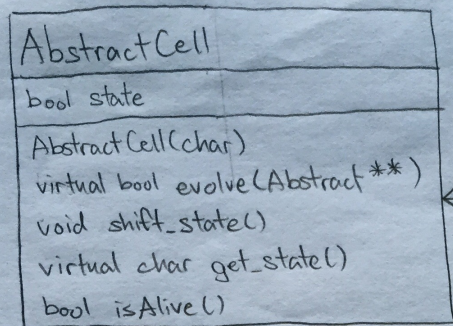 AbstractCell
bool state
AbstractCell(char)
virtual bool evolve(Abstract**)
void shift_state()
virtual char get_state()
bool isAlive()